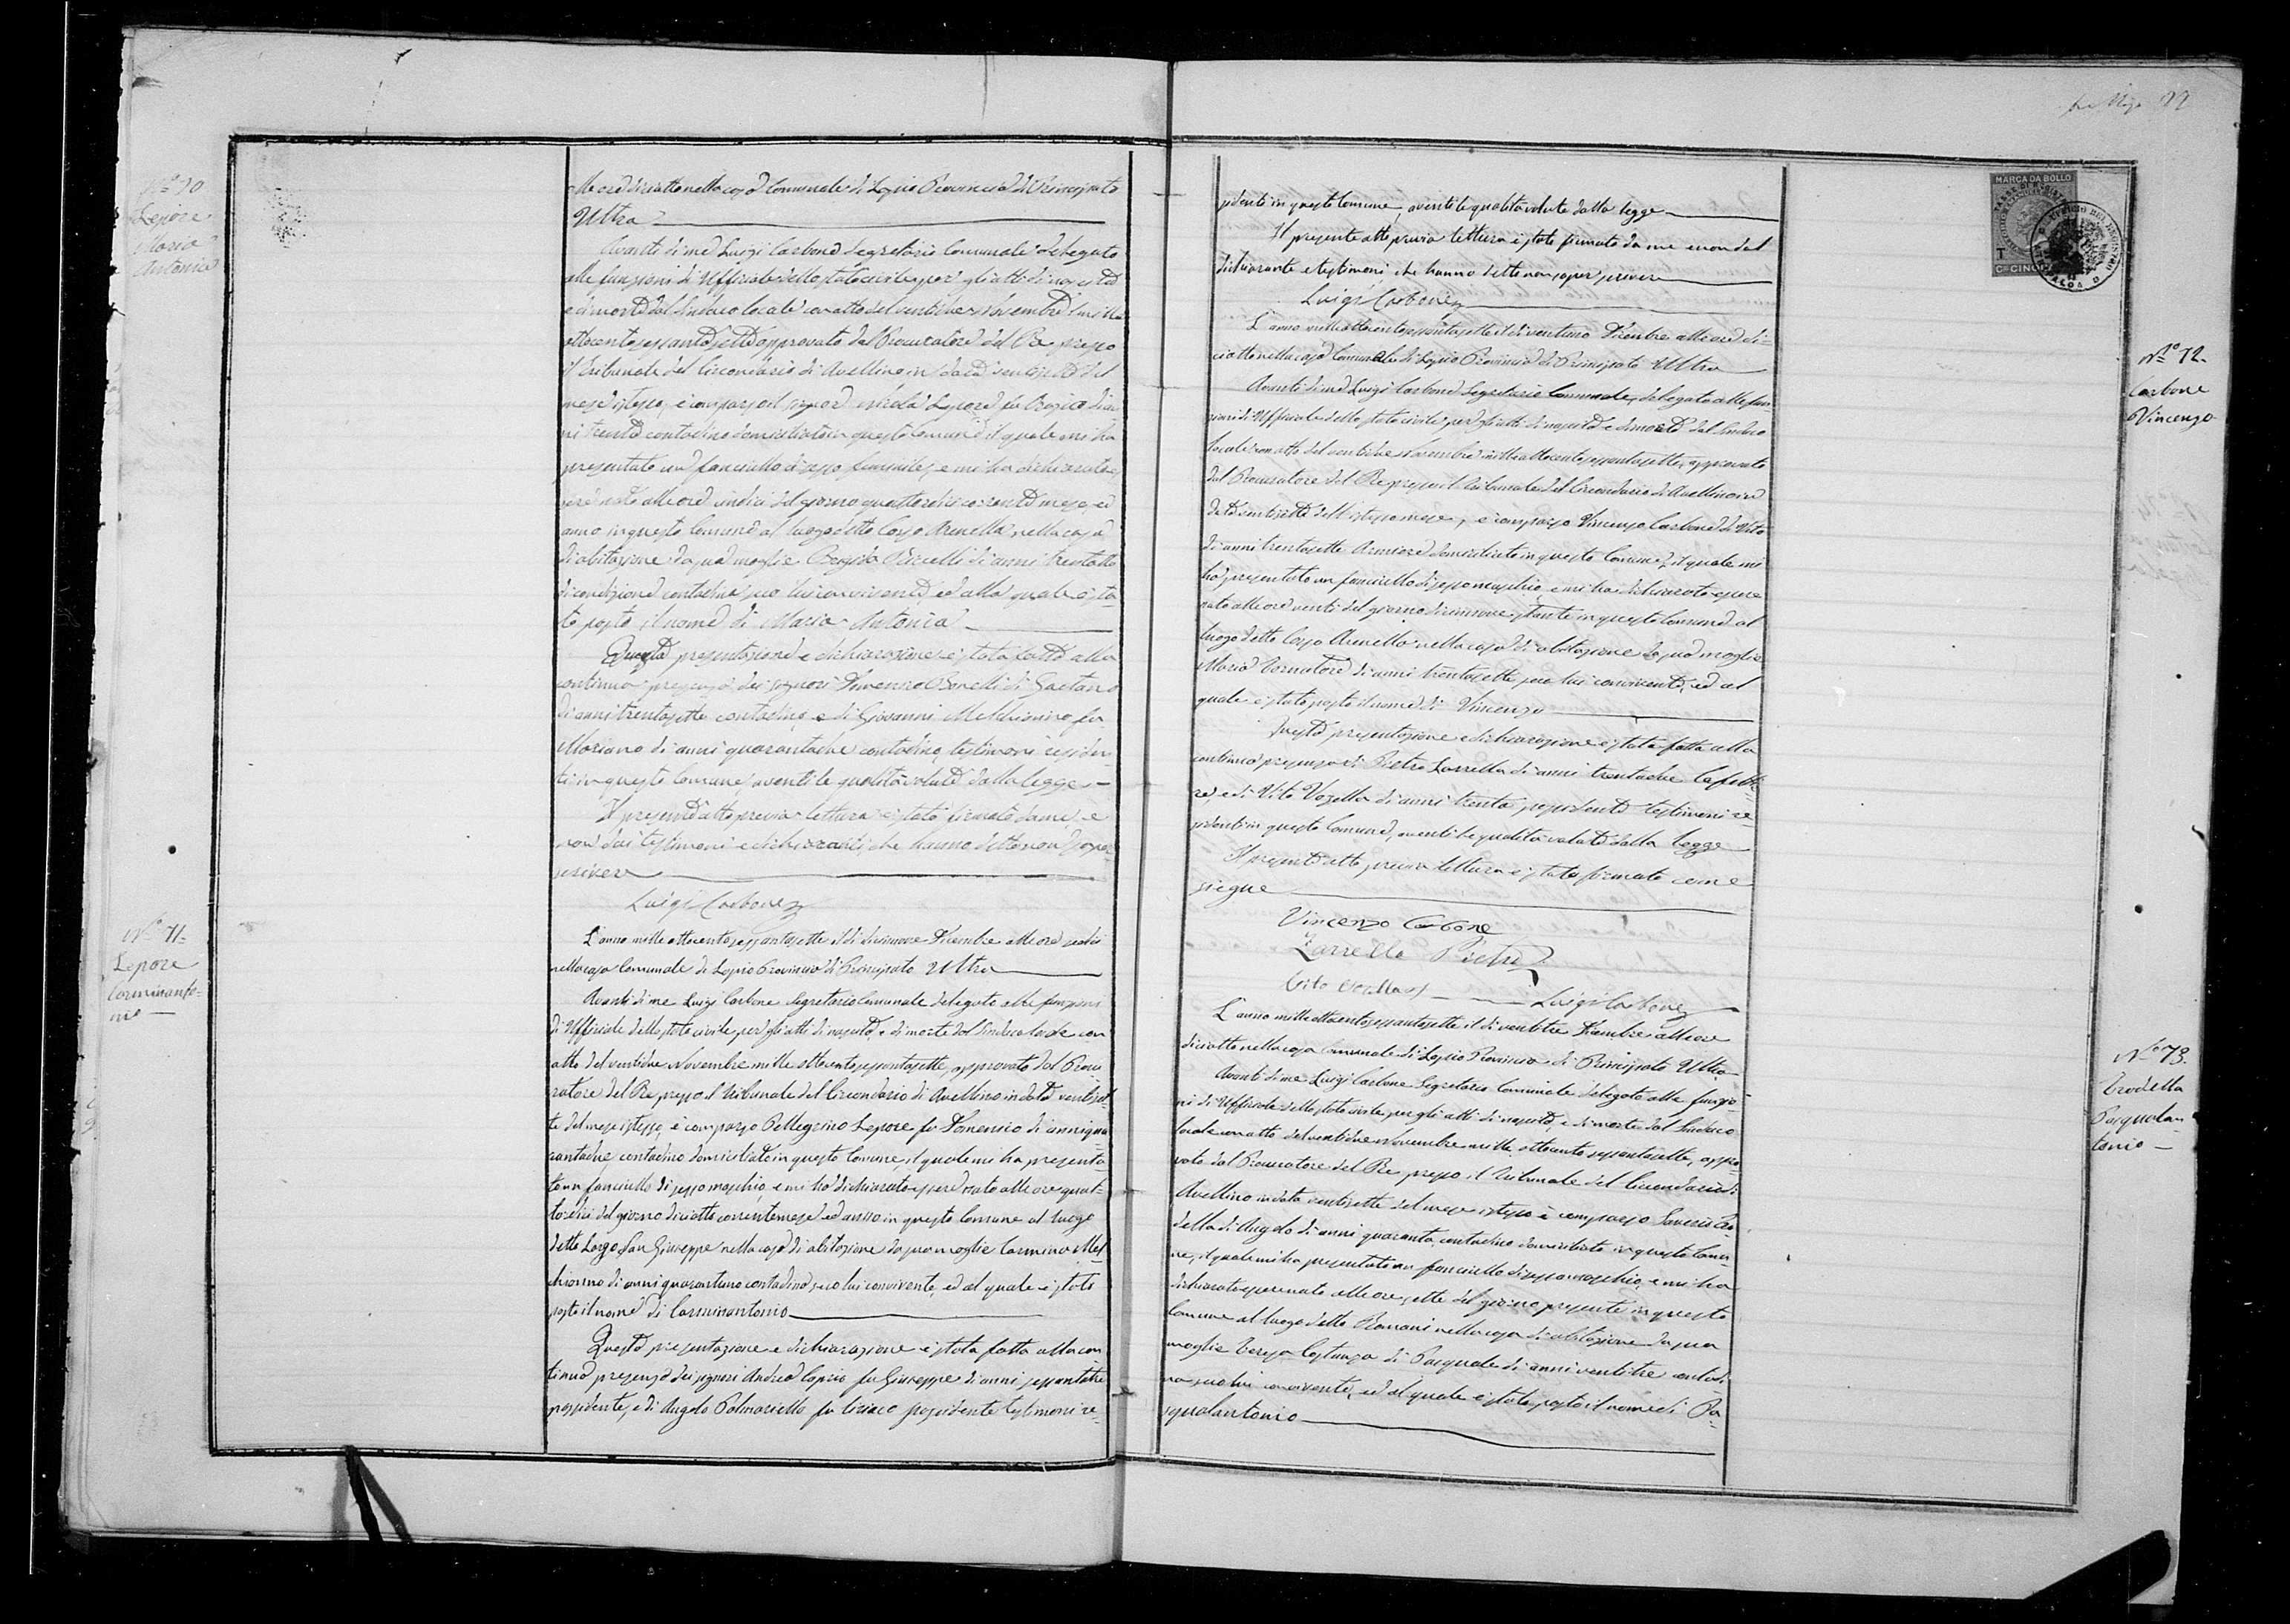 N.º 70
Lepore
Maria
Antonia
alle ore diciotto nella casa Comunale di Lapio Provincia di Principato
Ultra
Avanti di me Luigi Carbone Segretario Comunale delegato
alle funzioni di Uffiziale dello stato civile per gli atti di nascita
e di morte dal Sindaco locale con atto del ventidue Novembre mille
ottocento sessantasette approvato dal Procuratore del Re presso
il Tribunale del Circondario di Avellino in data ventisette del
mese istesso, è comparso il signor Nicola Lepore fu Orazio di an-
ni trenta contadino domiciliato in questo Comune il quale mi ha
presentato un fanciullo di sesso femminile, e mi ha dichiarato es-
sere nato alle ore undici del giorno quattordici corrente mese, ed
anno in questo Comune al luogo detto Corso Arenella nella casa
di abitazione da sua moglie di anni trentotto
di condizione contadina seco lui convivente, ed alla quale è sta-
to posto il nome di Maria Antonia
Questa presentazione e dichiarazione è stata fatta alla
continua presenza dei signori di Gaetano
di anni trentasette contadino, e di Giovanni Melchionno fu
Mariano di anni quarantadue contadino, testimoni residen-
ti in questo Comune aventi le qualità volute dalla legge
Il presente atto previa lettura è stato firmato da me e
non dai testimoni e dichiaranti, che hanno detto non saper
scrivere
Luigi Carbone
N.º 71.
Lepore
Carminanto-
nio
L'anno mille ottocento sessantasette il dì diciannove Dicembre alle ore sedici
nella casa Comunale di Lapio Provincia di Principato Ultra
Avanti di me Luigi Carbone Segretario Comunale delegato alle funzioni
di Uffiziale dello stato civile per gli atti di nascita, e di morte dal Sindaco locale con
atto del ventidue Novembre mille ottocento sessantasette, approvato dal Procu-
ratore del Re presso il Tribunale del Circondario di Avellino in data ventiset-
te del mese istesso, è comparso Pellegrino Lepore fu Domenico di anni qua-
rantadue contadino domiciliato in questo Comune, il quale mi ha presenta-
to un fanciullo di sesso maschio, e mi ha dichiarato essere nato alle ore quat-
tordici del giorno diciotto corrente mese ed anno in questo Comune al luogo
detto Largo San Giuseppe nella casa di abitazione da sua moglie Carmina Mel-
chionno di anni quarantuno contadina, seco lui convivente, ed al quale è stato
posto il nome di Carminantonio
Questa presentazione e dichiarazione è stata fatta alla con-
tinua presenza dei signori Andrea Caprio fu Giuseppe di anni sessantatre
possidente, e di Angelo Palmariello fu Ciriaco possidente testimoni re-
MARCA DA BOLLO
sidenti in questo Comune, aventi le qualità volute dalla legge
Il presente atto previa lettura è stato firmato da me e non dal
dichiarante e testimoni che hanno detto non saper scrivere
Luigi Carbone
N.º 72.
Carbone
Vincenzo
L'anno mille ottocento sessantasette il dì ventuno Dicembre alle ore di-
ciotto nella casa Comunale di Lapio Provincia di Principato Ultra
Avanti di me Luigi Carbone Segretario Comunale, delegato alle fun-
zioni di Uffiziale dello stato civile per gli atti di nascita e di morte dal Sindaco
locale con atto del ventidue Novembre mille ottocento sessantasette, approvato
dal Procuratore del Re presso il Tribunale del Circondario di Avellino in
data ventisette dell'istesso mese, è comparso Vincenzo Carbone di Vito
di anni trentasette domiciliato in questo Comune, il quale mi
ha presentato un fanciullo di sesso maschio, e mi ha dichiarato essere
nato alle ore venti del giorno diciannove stante in questo Comune al
luogo detto Corso Arenella nella casa di abitazione da sua moglie
Maria Tornatore di anni trentasette seco lui convivente, ed al
quale è stato posto il nome di Vincenzo
Questa presentazione e dichiarazione è stata fatta alla
continua presenza di Pietro Zarrella di anni trentadue
re, e di Vito Vozella di anni trenta possidente testimoni re-
sidenti in questo Comune, aventi le qualità volute dalla legge
Il presente atto previa lettura è stato firmato come
siegue
Vincenzo Carbone
Zarrella Pietro
Vito Vozella
Luigi Carbone
N.º 73.
Trodella
Pasqualan-
tonio
L'anno mille ottocento sessantasette il dì ventitre Dicembre alle ore
diciotto nella casa Comunale di Lapio Provincia di Principato Ultra
Avanti di me Luigi Carbone Segretario Comunale delegato alle funzio-
ni di Uffiziale dello stato civile per gli atti di nascita, e di morte dal Sindaco
locale con atto del ventidue Novembre mille ottocento sessantasette, appro-
vato dal Procuratore del Re presso il Tribunale del Circondario di
Avellino in data ventisette del mese istesso è comparso Saverio Tro-
della di Angelo di anni quaranta contadino domiciliato in questo Comu-
ne, il quale mi ha presentato un fanciullo di sesso maschio, e mi ha
dichiarato essere nato alle ore sette del giorno presente in questo
Comune al luogo detto Romani nella casa di abitazione da sua
moglie Teresa Costanza di Pasquale di anni ventitre contadi-
na seco lui convivente, ed al quale è stato posto il nome di Pa-
squalantonio